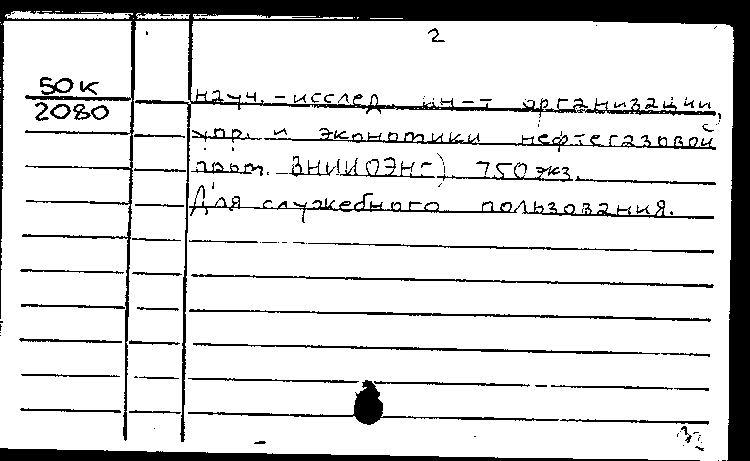 2
50К
2080
науч.-исслед. ин-т организации,
упр. и экономики нефтегазовой
пром. ВНИИОЭНГ). 750 экз.
Для служебного пользования.